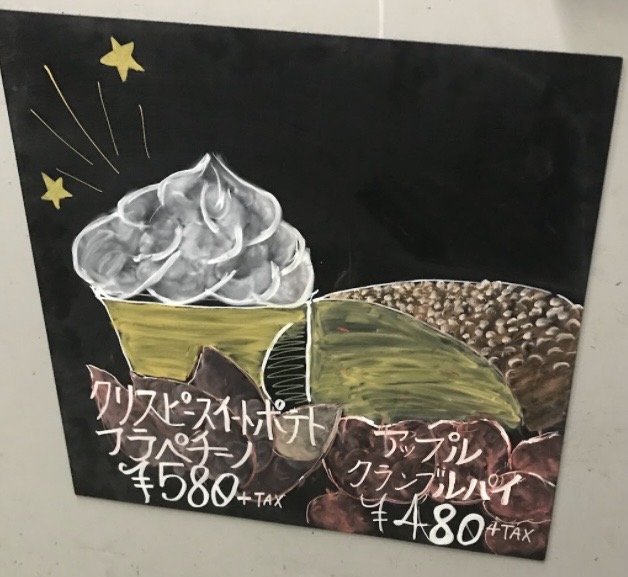 クリスピースイートポテト
フラペチーノ
¥580+TAX
アップル
クランブルパイ
¥480+TAX